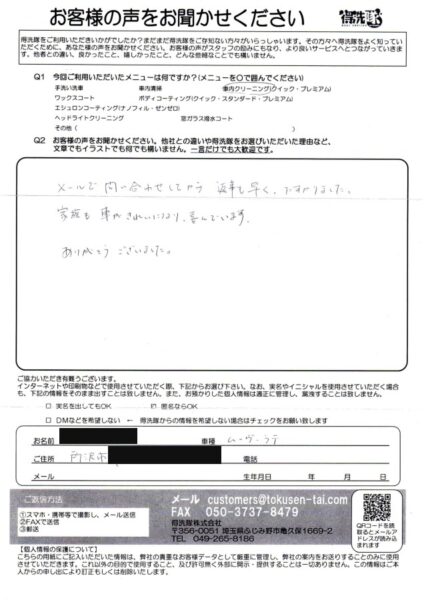 お客様の声をお聞かせください
得洗隊
得洗隊をご利用いただきいかがでしたか？まだまだ得洗隊をご存知ない方々がいらっしゃいます。その方々へ得洗隊をよく知って
いただくために、あなた様の声をお聞かせください。お客様の声がスタッフの励みにもなり、より良いサービスへとつながっていきま
す。他者との違い、良かったこと、嬉しかったこと、どんな些細なことでも構いません。
Q1 今回ご利用いただいたメニューは何ですか？(メニューを○で囲んでください)
手洗い洗車 車内清掃 車内クリーニング(クイック・プレミアム)
ワックスコート ボディコーティング(クイック・スタンダード・プレミアム)
エシュロンコーティング(ナノフィル・ゼンゼロ)
ヘッドライトクリーニング 窓ガラス撥水コート
その他( )
Q2 お客様の声をお聞かせください。他社との違いや得洗隊をお選びいただいた理由など、
文章でもイラストでも何でも構いません。一言だけでも大歓迎です。
メールで問い合わせしてから 返事も早く、たすかりました。
家族も 車がきれいになり、喜んでいます。
ありがとうございました。
ご協力いただき有難うございます。
インターネットや印刷物などで使用させていただく際、下記からお選び下さい。なお、実名やイニシャルを使用させていただく場合
も、下記の情報をそのまま出すことは致しません。また、お預かりした個人情報は適正に管理し、漏洩することは致しません。
□ 実名を出してもOK ☑ 匿名ならOK
□ DMなどを希望しない ← 得洗隊からの情報を希望しない場合はチェックをお願い致します
お名前 車種 ムーヴラテ
ご住所 所沢市 電話
メール 生年月日 年 月 日
ご返信方法
①スマホ・携帯等で撮影し、メール送信
②FAXで送信
③郵送
メール customers@tokusen-tai.com
FAX 050-3737-8479
得洗隊株式会社
〒356-0051 埼玉県ふじみ野市亀久保1669-2
TEL 049-265-8186
QRコードを読
取るとメールア
ドレスが読み込
まれます
【個人情報の保護について】
こちらの用紙にご記入いただいた情報は、弊社の貴重なお客様データとして厳重に管理し、弊社の案内をお送りすることのみに使用
させていただきます。これ以外の目的で使用すること、及び許可無く外部に開示・提供することは一切ありません。この情報はご本
人からの申し出により訂正もしくは削除いたします。